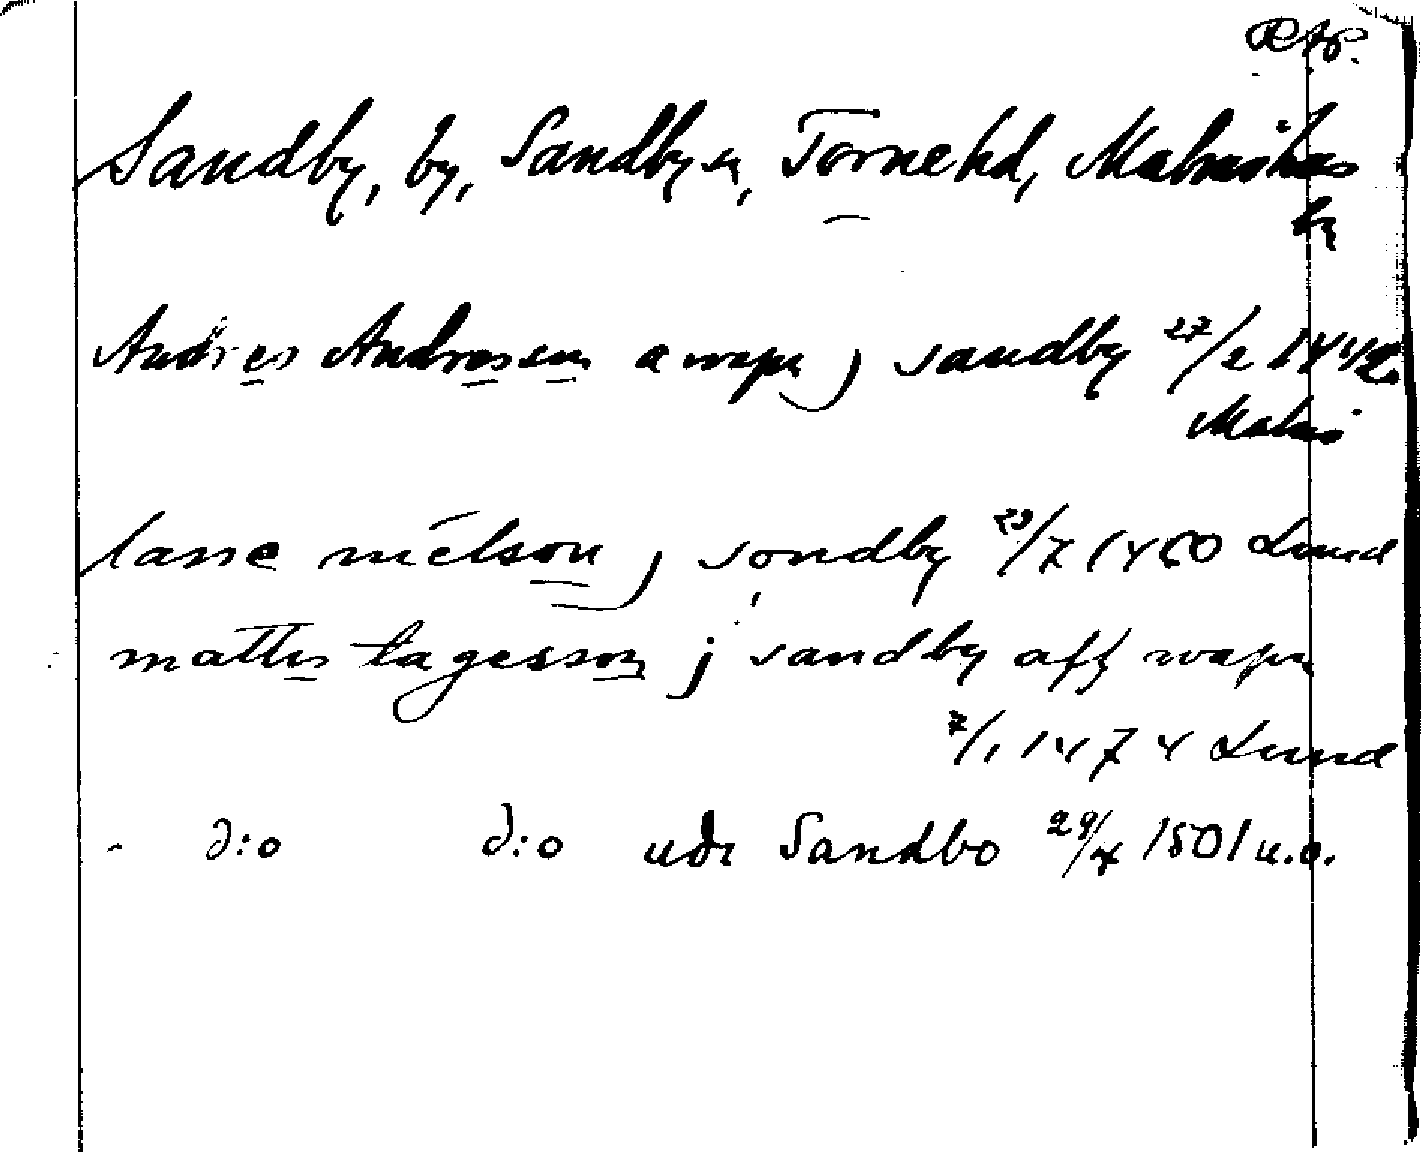 RAP.
Sandby, by, Sandby sn, Torne hd, Malmöhus
ln
Andres Andressen a wapn j sandby 27/2 1442
Malmö
lasse nielson j sondby 23/7 1460 Lund
mattis tagesson j sandby aff wapn
7/1 1474 Lund
- d:o d:o udi Sandbo 29/4 1501 u.o.